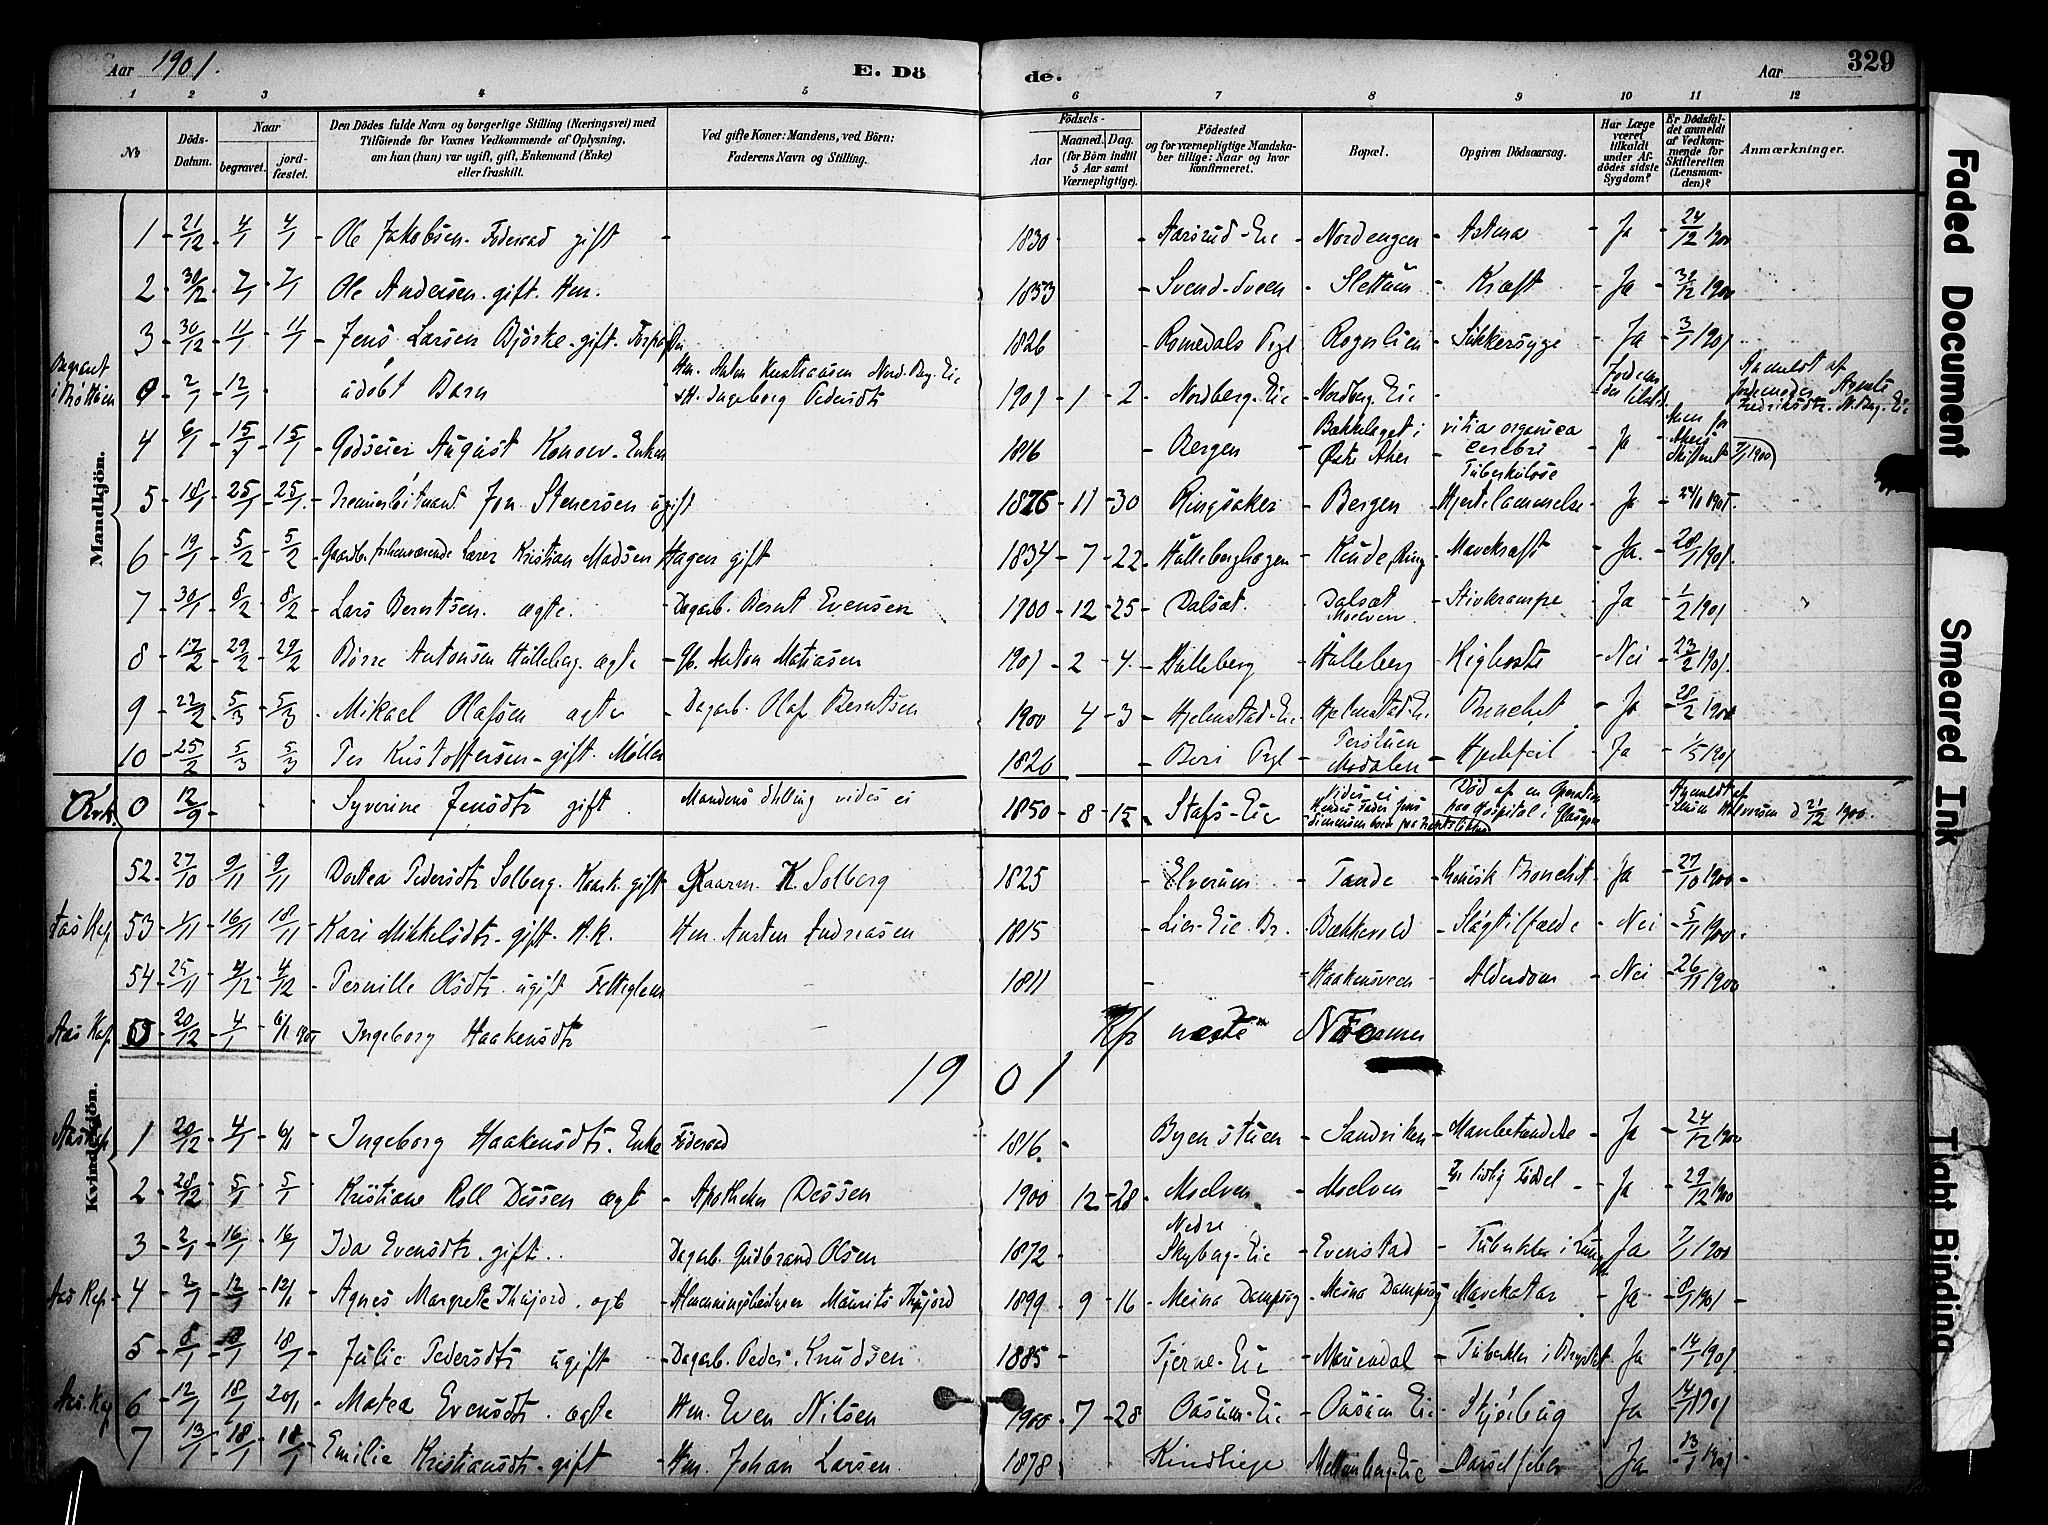 Aar 1901. E. Dö de. Aar 329
1 2 3 4 5 6 7 8 9 10 11 12
№
Döds-Datum.
Naar begravet. jordfæstet.
Den Dödes fulde Navn og borgerlige Stilling (Næringsvei) med Tilföiende for Voxnes Vedkommende af Oplysning, om han (hun) var ugift, gift, Enkemand (Enke) eller fraskilt.
Ved gifte Koner: Mandens, ved Börn: Faderens Navn og Stilling.
Födsels- Aar Maaned. Dag. (for Börn indtil 5 Aar samt Værnepligtige).
Födested og for værnepligtige Mandskaber tillige: Naar og hvor konfirmeret.
Bopæl.
Opgiven Dödsaarsag.
Har Læge været tilkaldt under Afdödes sidste Sygdom?
Er Dödsfaldet anmeldt af Vedkommende for Skifteretten (Lensmanden)?
Anmærkninger.
Mandkjön.
1 21/12 4/1 4/1 Ole Jakobsen. Föderaad gift 1830 Aasrud-Eie Nordengen Astma Ja 24/12 1900
2 30/12 7/1 7/1 Ole Andersen. gift. Hm. 1853 Svend-Sveen Slettum Kræft Ja 31/12 1900
3 30/12 11/1 11/1 Jens Larsen Björke gift. 1826 Romedals Prgl Rogerlien Sukkersyge Ja 3/1 1901
0 2/1 12/1 udöbt Barn Hm. Anton Kristiansen Nord-Bg. Eie Ingeborg Pedersdtr 1901 1 2 Nordberg-Eie Nordberg Eie Anmeldt af Jordemoder
4 6/1 15/1 15/1 Godseier August Konow. Enkem 1816 Bergen Bækkelaget i Østre Aker vitia organica cerebri Ja
5 18/1 25/1 25/1 Jon Stenersen ugift 1876 11 30 Ringsaker Bergen Tuberkulose Hjertelammelse Ja 24/1 1901
6 19/1 5/2 5/2 Gaardb. forhenværende Lærer Kristian Madsen Hagen gift 1834 7 22 Hulleberghagen Mavekræft Ja 28/1 1901
7 30/1 8/2 8/2 Lars Berntsen. ægte. Dagarb. Bernt Evensen 1900 12 25 Dalsæt. Dalsæt Moelven Stivkrampe Ja 1/2 1901
8 17/2 29/2 29/2 Börre Antonsen Hulleberg. ægte Gb. Anton Matiasen 1901 2 4 Hulleberg Hulleberg Kighoste Nei 23/2 1901
9 22/2 5/3 5/3 Mikael Olafsen ægte Dagarb. Olaf Berntsen 1900 4 3 Hjelmstad-Eie Hjelmstad-Eie Bronchit Ja 28/2 1900
10 25/2 5/3 5/3 Per Kristoffersen gift. Möller 1820 Biri Prgl Perstuen Modalen Hjertefeil Ja 1/3 1901
0 12/9 Syverine Jensdtr gift Mandens Stilling vides ei 1850 8 15 Stafs-Eie Vides ei Hendes Fader Jens Död af en Operation paa Hospital i Glasgow Anmeldt af Halvorsen d 21/12 1900.
52 27/10 9/11 9/11 Dortea Pedersdtr Solberg. gift Gaarm. K. Solberg 1825 Elverum Tande Kronisk Bronchit Ja 27/10 1900
Aas Kap 53 1/11 16/11 18/11 Kari Mikkelsdtr gift. H.k. Hm. Austen Andreasen 1815 Lier-Eie. Br. Bækkevold Slagtilfælde Nei 5/11 1900
54 25/11 4/12 4/12 Pernille Olsdtr ugift 1811 Haakensveen Alderdom Nei 26/11 1900
Aas Kap 20/12 4/1 6/1 1901 Ingeborg Haakensdtr næste
1901
Kvindekjön.
Aas Kap 1 20/12 4/1 6/1 Ingeborg Haakensdtr. Enke Föderaad 1816. Byenstuen Sandviken Mavebetændelse Ja 24/12 1900
2 28/12 5/1 5/1 Kristiane Roll Dessen ægte Apotheker Dessen 1900 12 28 Moelven Moelven For tidlig Födsel Ja 29/12 1900
3 2/1 16/1 16/1 Ida Evensdtr. gift. Dagarb. Gudbrand Olsen 1872 Nedre Skyberg-Eie Evenstad Ja
Aas Kap 4 2/1 12/1 12/1 Agnes Margrete Thujord. ægte Almenningsbestyrer Maurits Thujord 1899 9 16 Meina Dampsag Meina Dampsag Mavekatar Ja 8/1 1901
5 8/1 18/1 18/1 Julie Pedersdtr ugift Dagarb. Peder Knudsen 1885 Tjerne-Eie Mariendal Tuberkler i Brystet Ja 14/1 1901
Aas Kap 6 12/1 18/1 20/1 Matea Evensdtr. ægte Hm. Even Nilsen 1900 7 28 Oasum-Eie Oasum Eie Ja 14/1 1901
7 13/1 18/1 18/1 Emilie Kristiansdtr gift Hm. Johan Larsen 1878 Kindlieie Barselfeber Ja 13/1 1901
Faded Document
Smeared Ink
Tight Binding